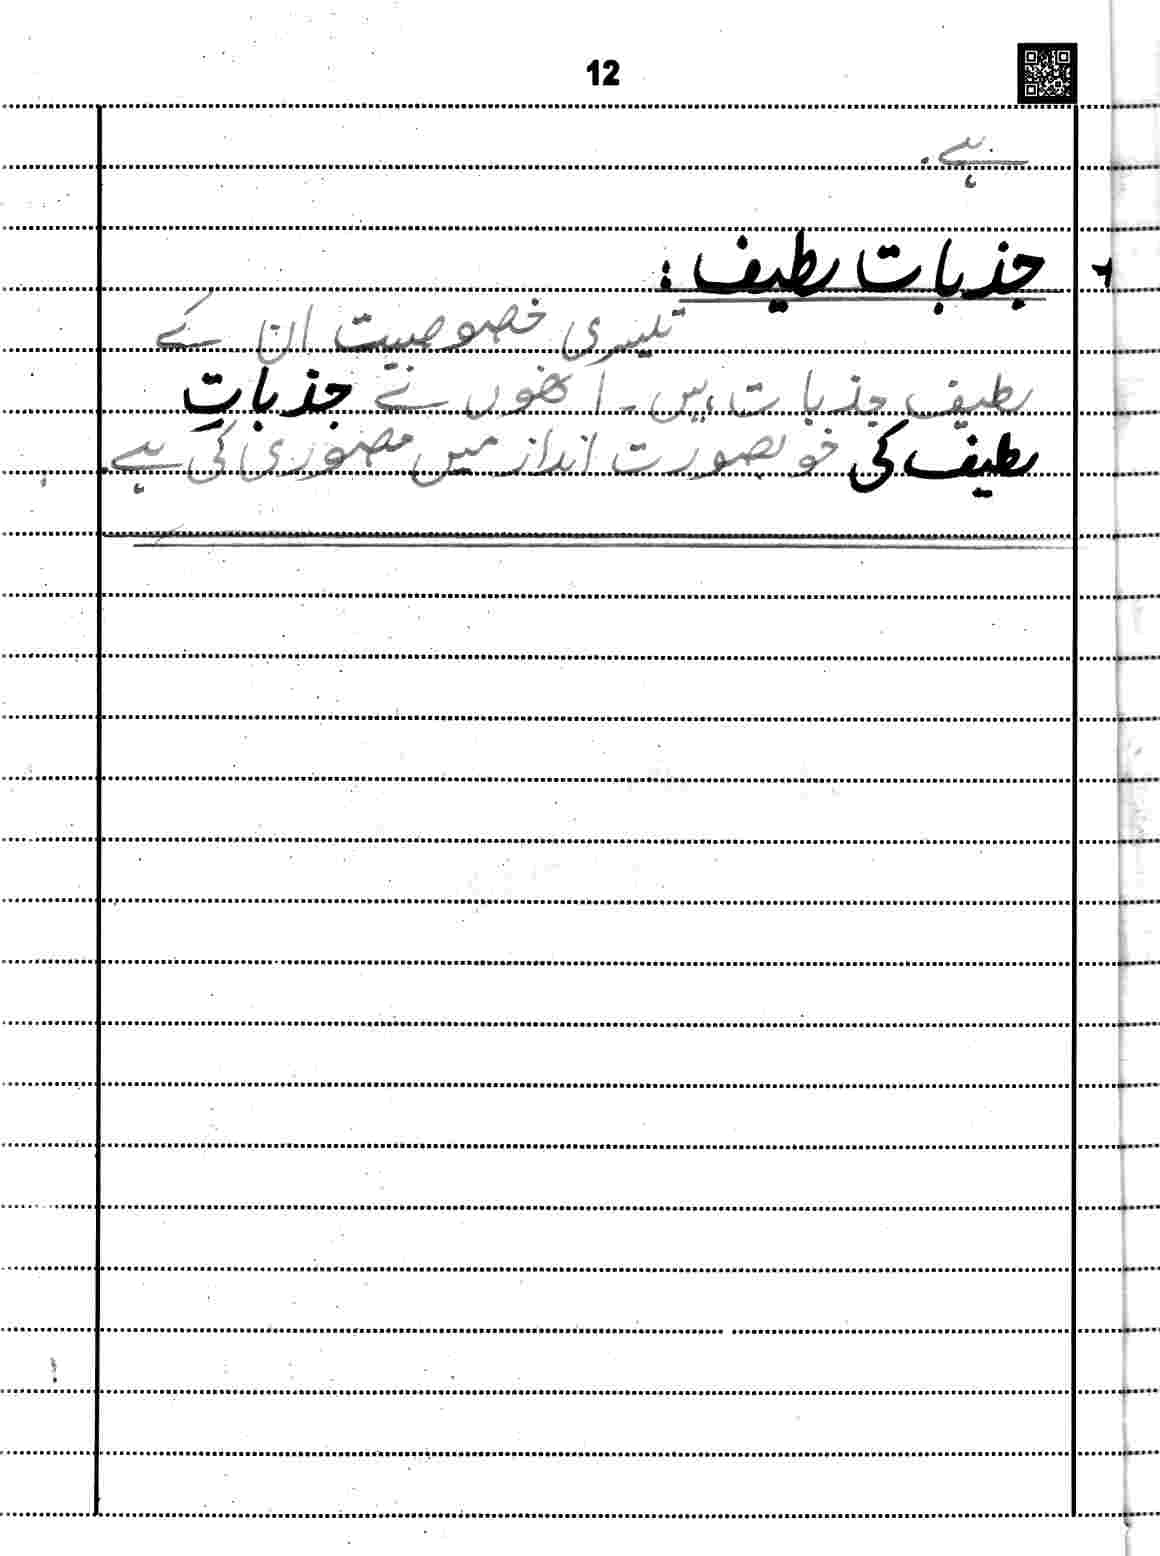 12
ہے۔
جذبات لطیف :
تیسری خصوصیت ان کے
لطیف جذبات ہیں۔ انھوں نے جذباتِ
لطیف کی خوبصورت انداز میں مصوری کی ہے۔